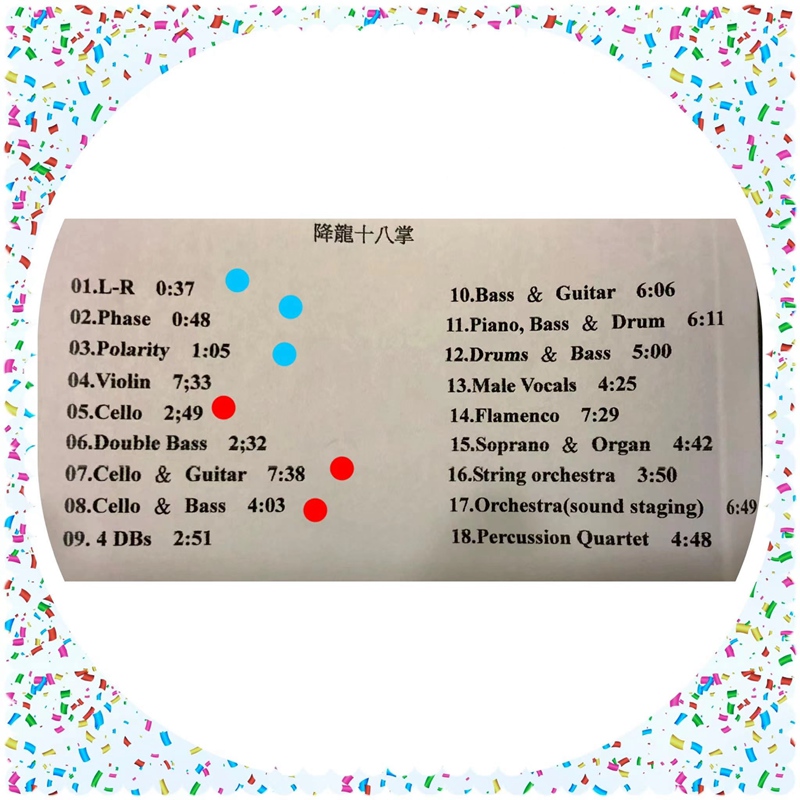 降龍十八掌
01.L-R 0:37
02.Phase 0:48
03.Polarity 1:05
04.Violin 7;33
05.Cello 2;49
06.Double Bass 2;32
07.Cello & Guitar 7:38
08.Cello & Bass 4:03
09. 4 DBs 2:51
10.Bass & Guitar 6:06
11.Piano, Bass & Drum 6:11
12.Drums & Bass 5:00
13.Male Vocals 4:25
14.Flamenco 7:29
15.Soprano & Organ 4:42
16.String orchestra 3:50
17.Orchestra(sound staging) 6:49
18.Percussion Quartet 4:48